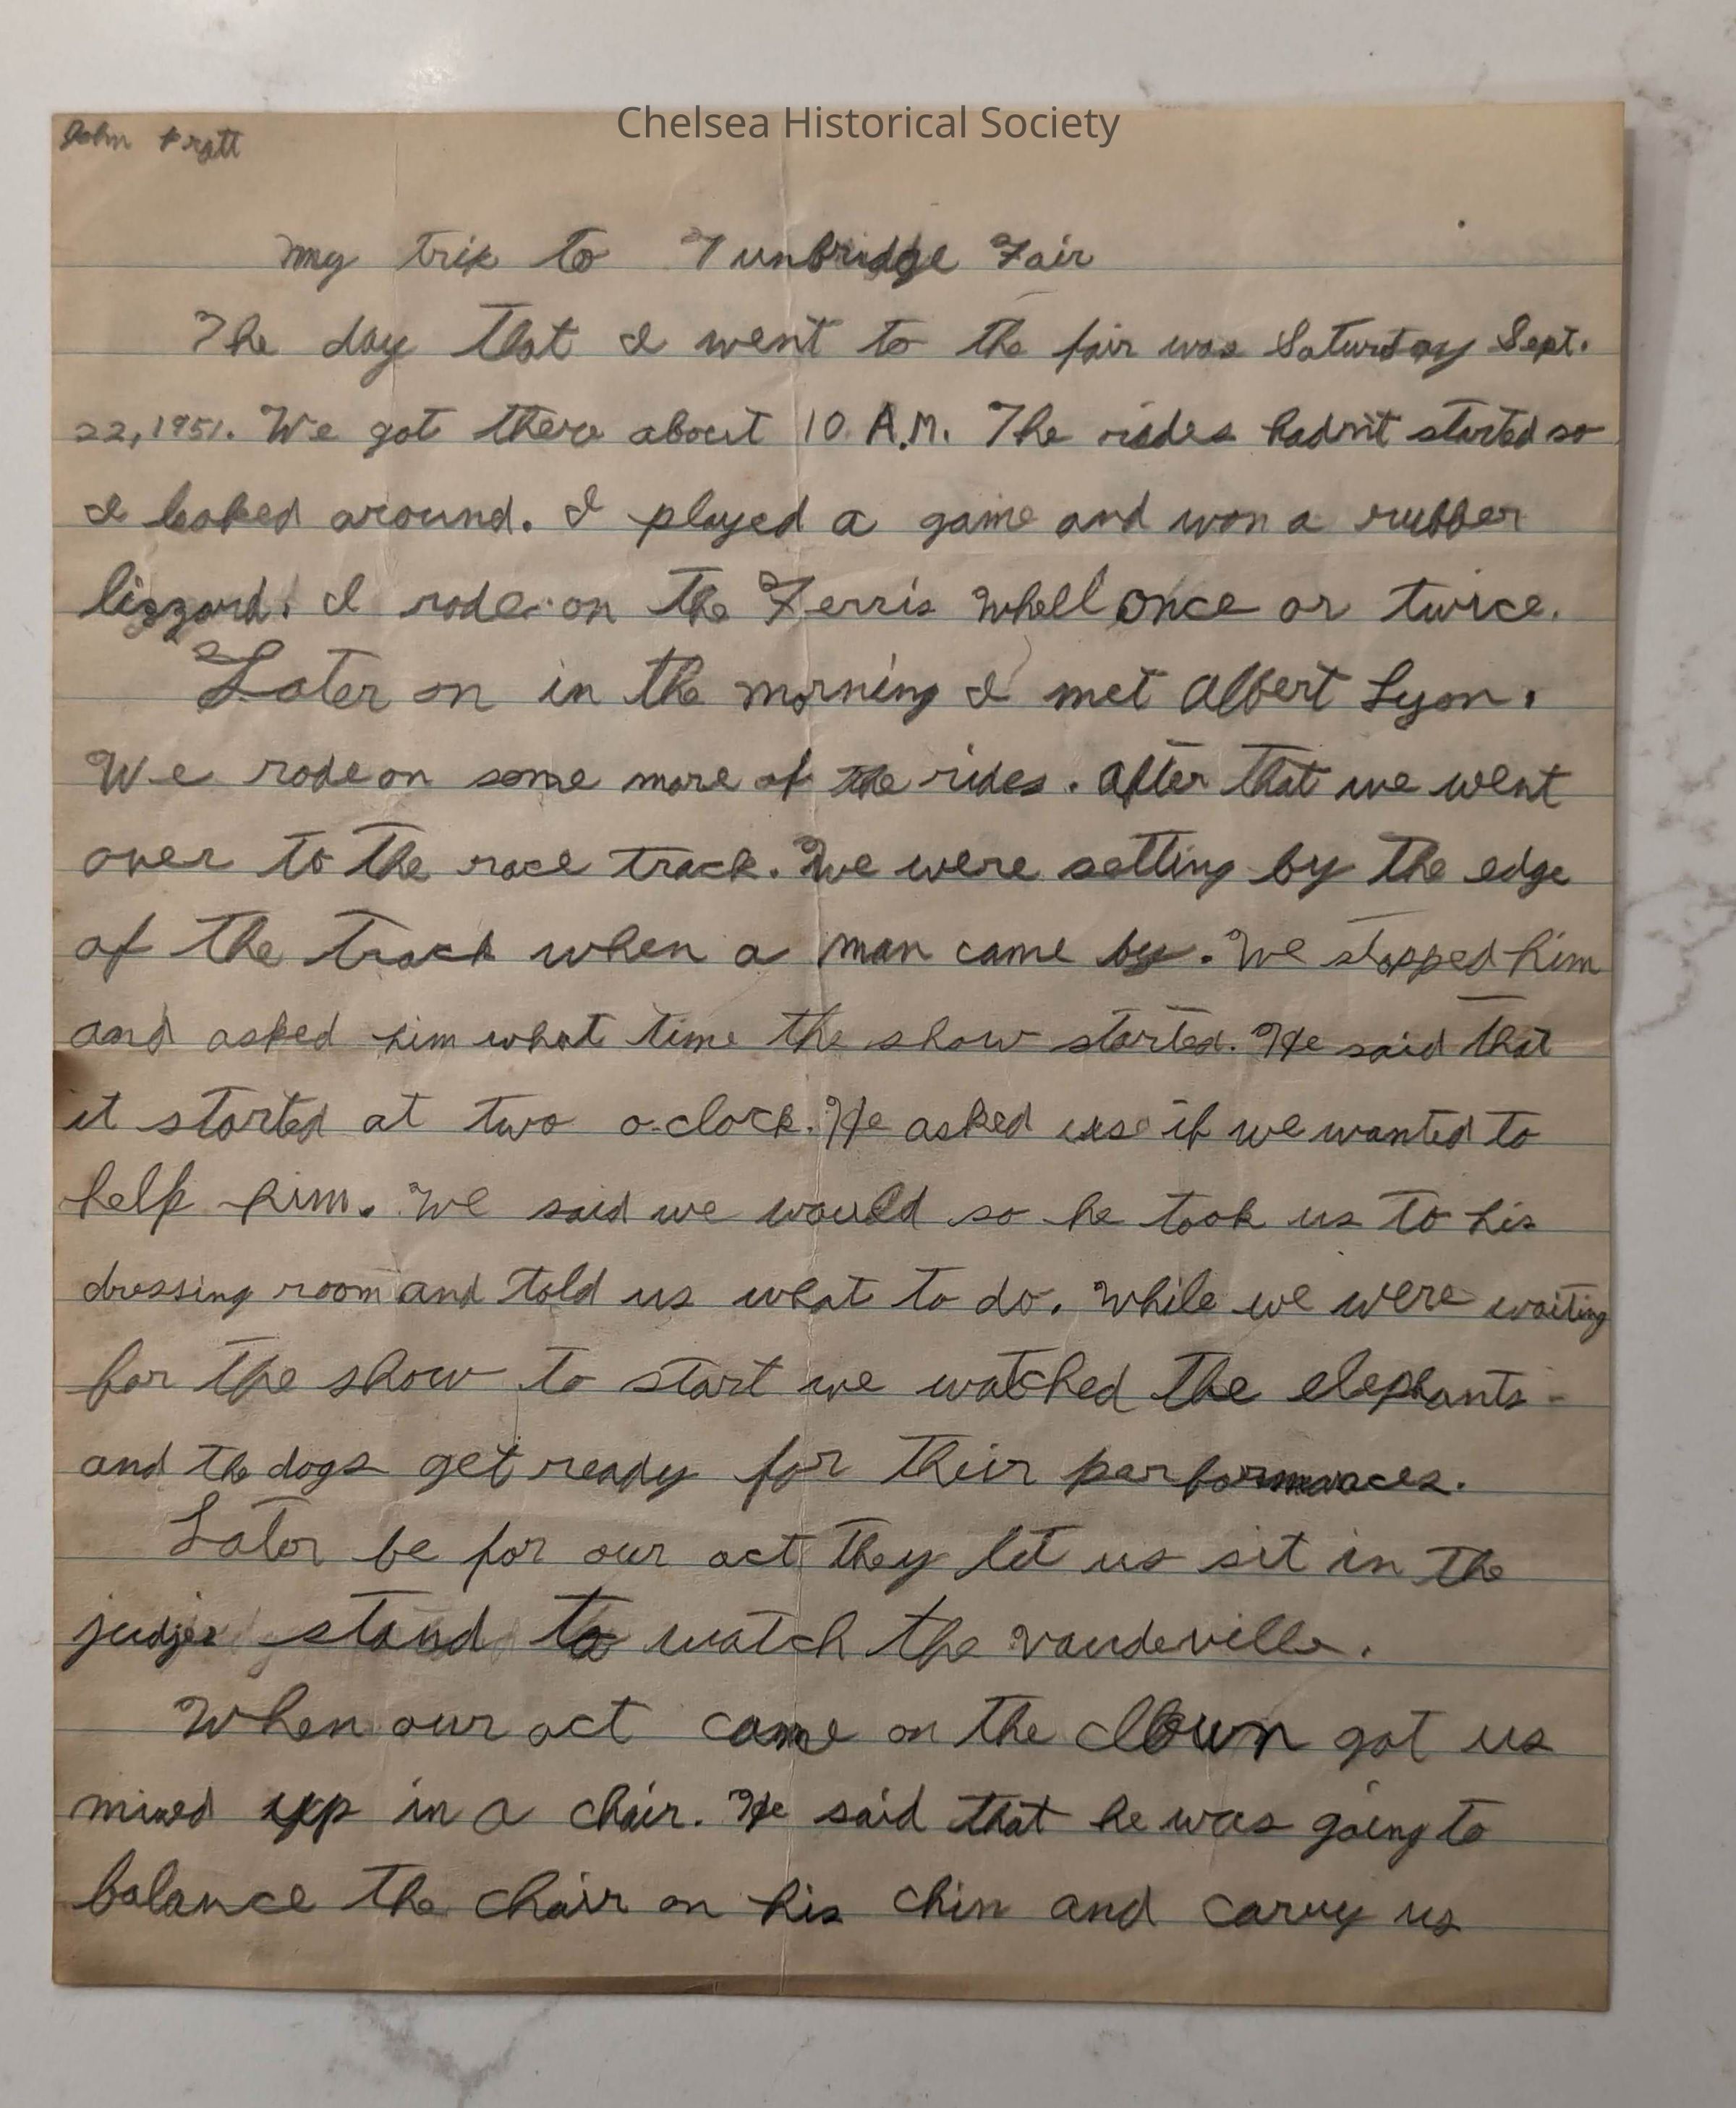 Chelsea Historical Society
John Pratt
My trip to Tunbridge Fair
The day that I went to the fair was Saturday Sept.
22, 1951. We got there about 10 A.M. The rides hadn't started so
I looked around. I played a game and won a rubber
lizzard. I rode on the Ferris Whell once or twice.
Later on in the morning I met Albert Lyon.
We rode on some more of the rides. After that we went
over to the race track. We were setting by the edge
of the track when a man came by. We stopped him
and asked him what time the show started. He said that
it started at two o-clock. He asked use if we wanted to
help him. We said we would so he took us to his
dressing room and told us what to do. While we were waiting
for the show to start we watched the elephants
and the dogs get ready for their performances.
Later be for our act they let us sit in the
judges stand to watch the vaudeville.
When our act came on the clown got us
mixed up in a chair. He said that he was going to
balance the chair on his chin and carry us